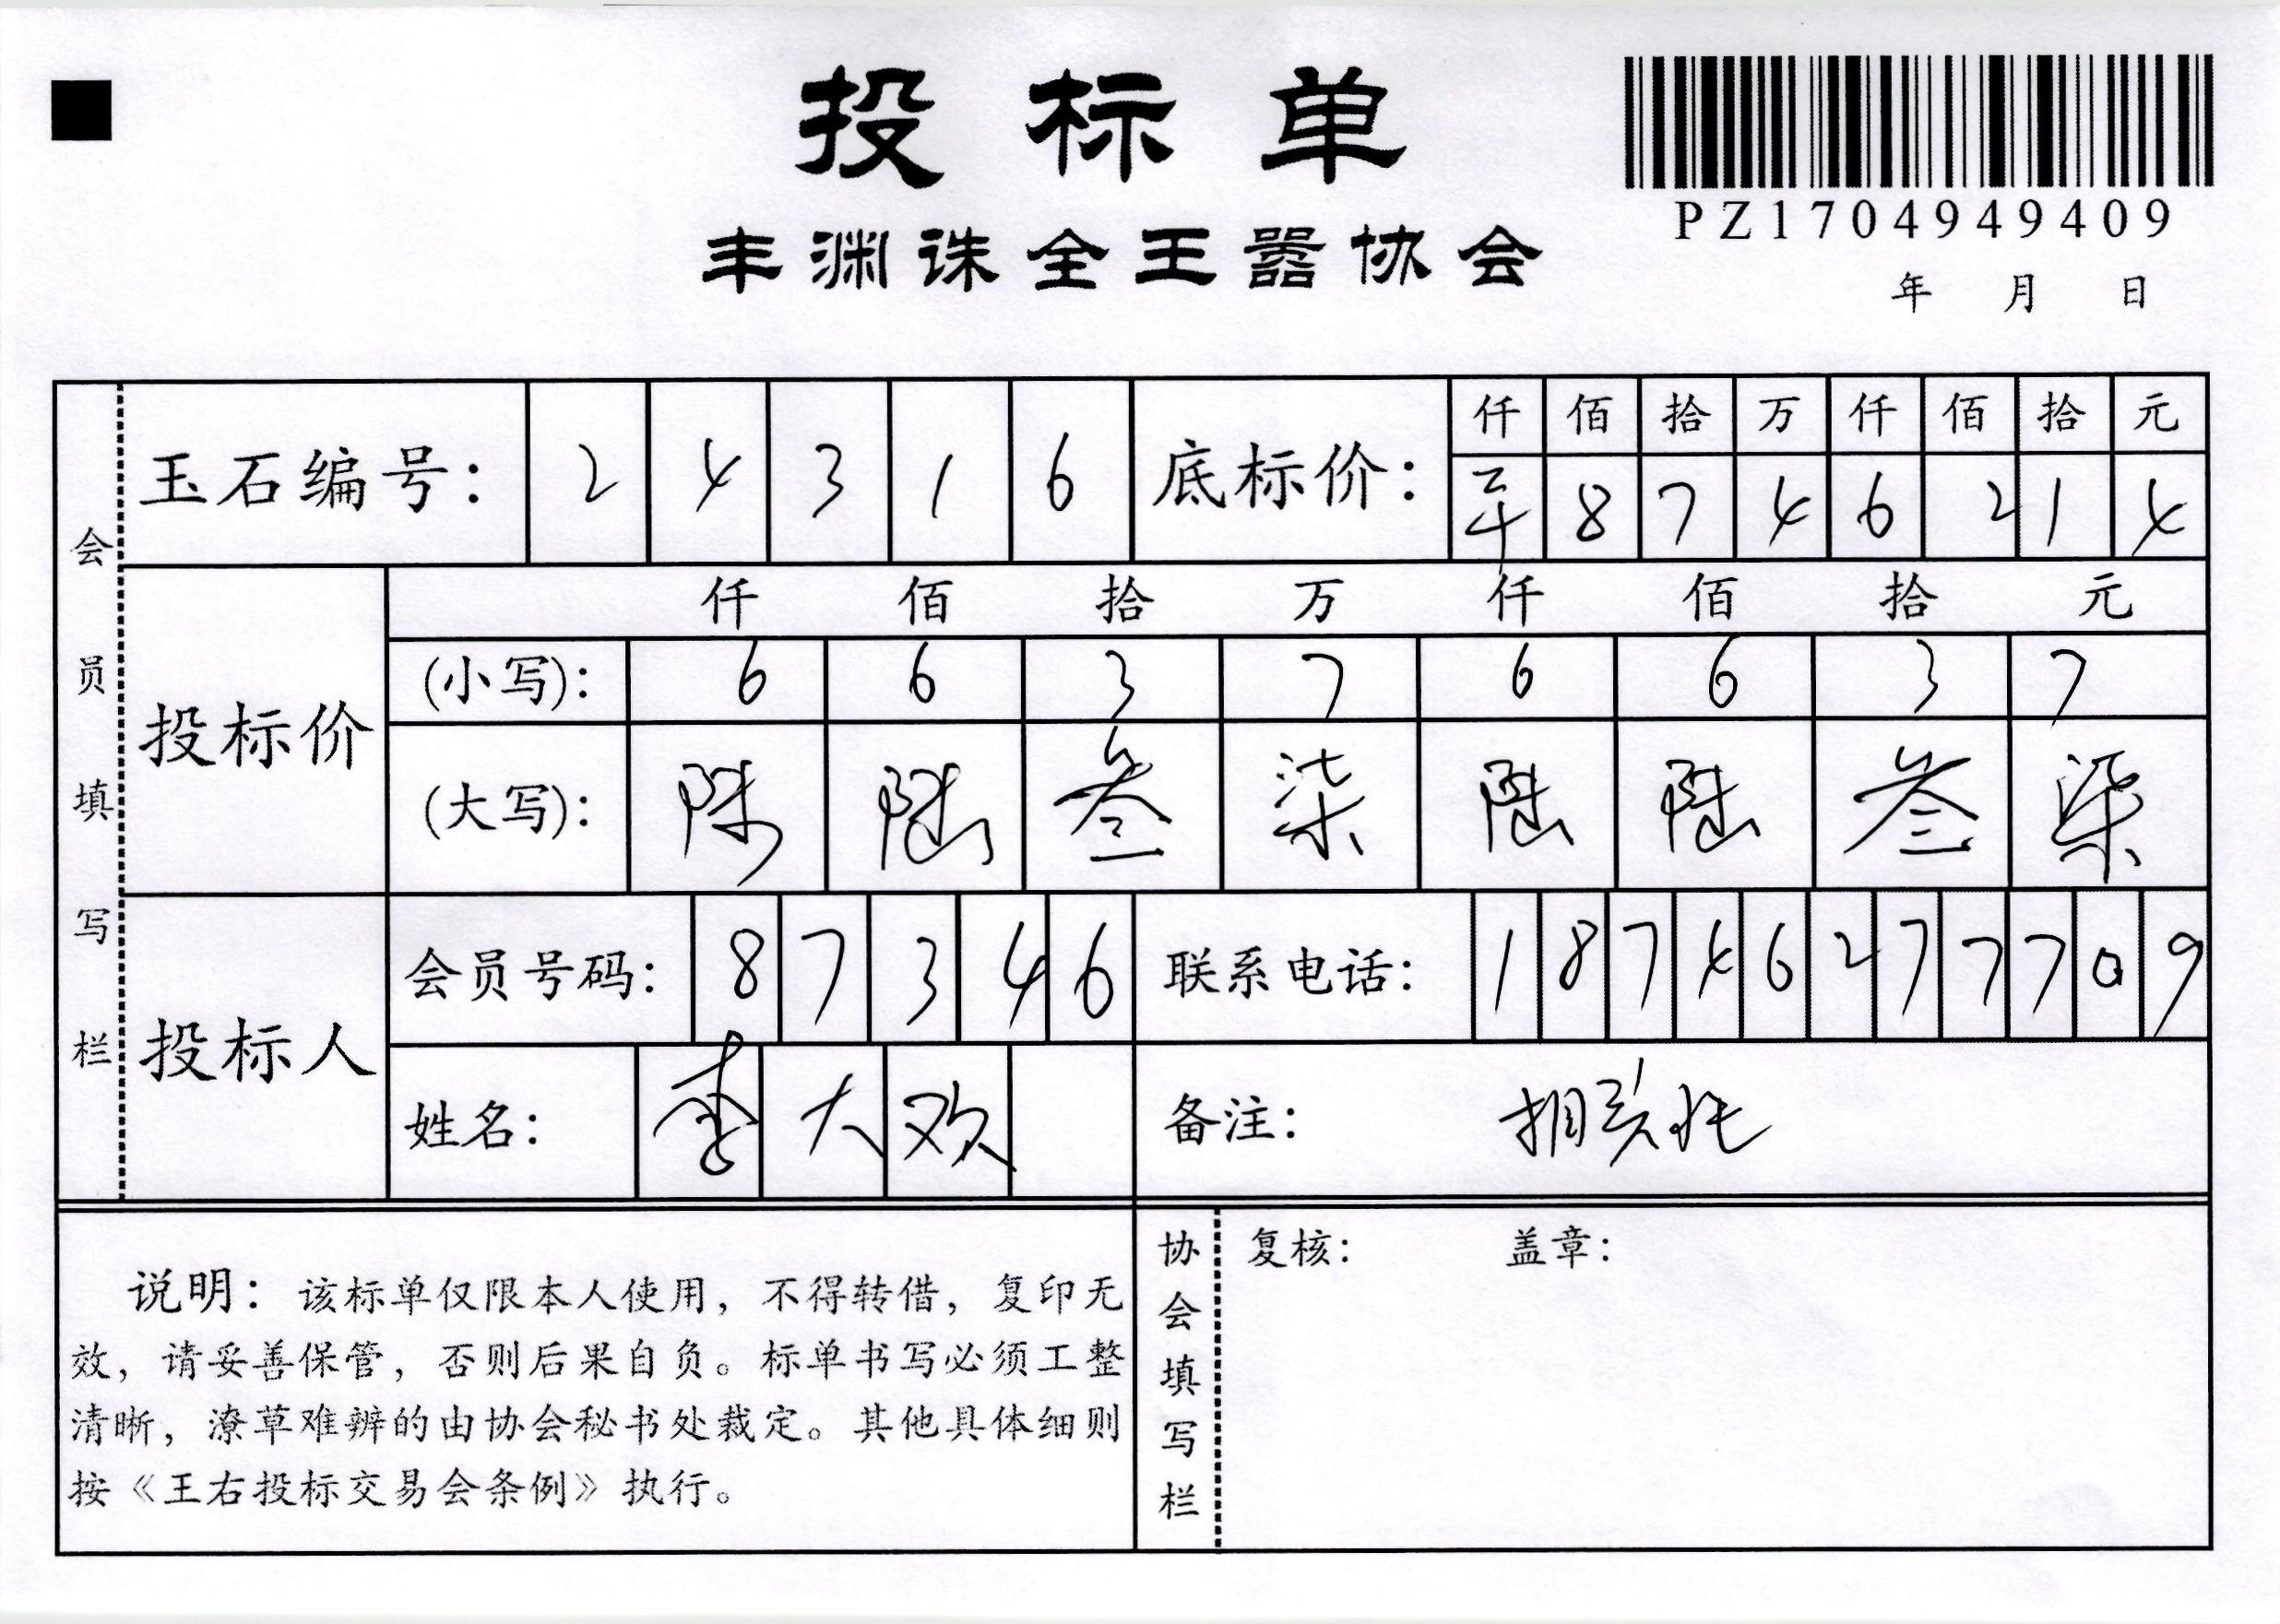 投标单
PZ1704949409
丰渊诛全王嚣协会
年 月 日
会员填写栏
玉石编号: 2 4 3 1 6
底标价:
仟 佰 拾 万 仟 佰 拾 元
8 7 4 6 2 1 4
投标价
仟 佰 拾 万 仟 佰 拾 元
(小写): 6 6 3 7 6 6 3 7
(大写): 陆 陆 叁 柒 陆 陆 叁 柒
投标人
会员号码: 8 7 3 4 6
联系电话: 1 8 7 4 6 2 7 7 7 0 9
姓名: 李 大 欢
备注:
说明: 该标单仅限本人使用, 不得转借, 复印无
效, 请妥善保管, 否则后果自负。标单书写必须工整
清晰, 潦草难辨的由协会秘书处裁定。其他具体细则
按《王右投标交易会条例》执行。
协会填写栏
复核: 盖章: